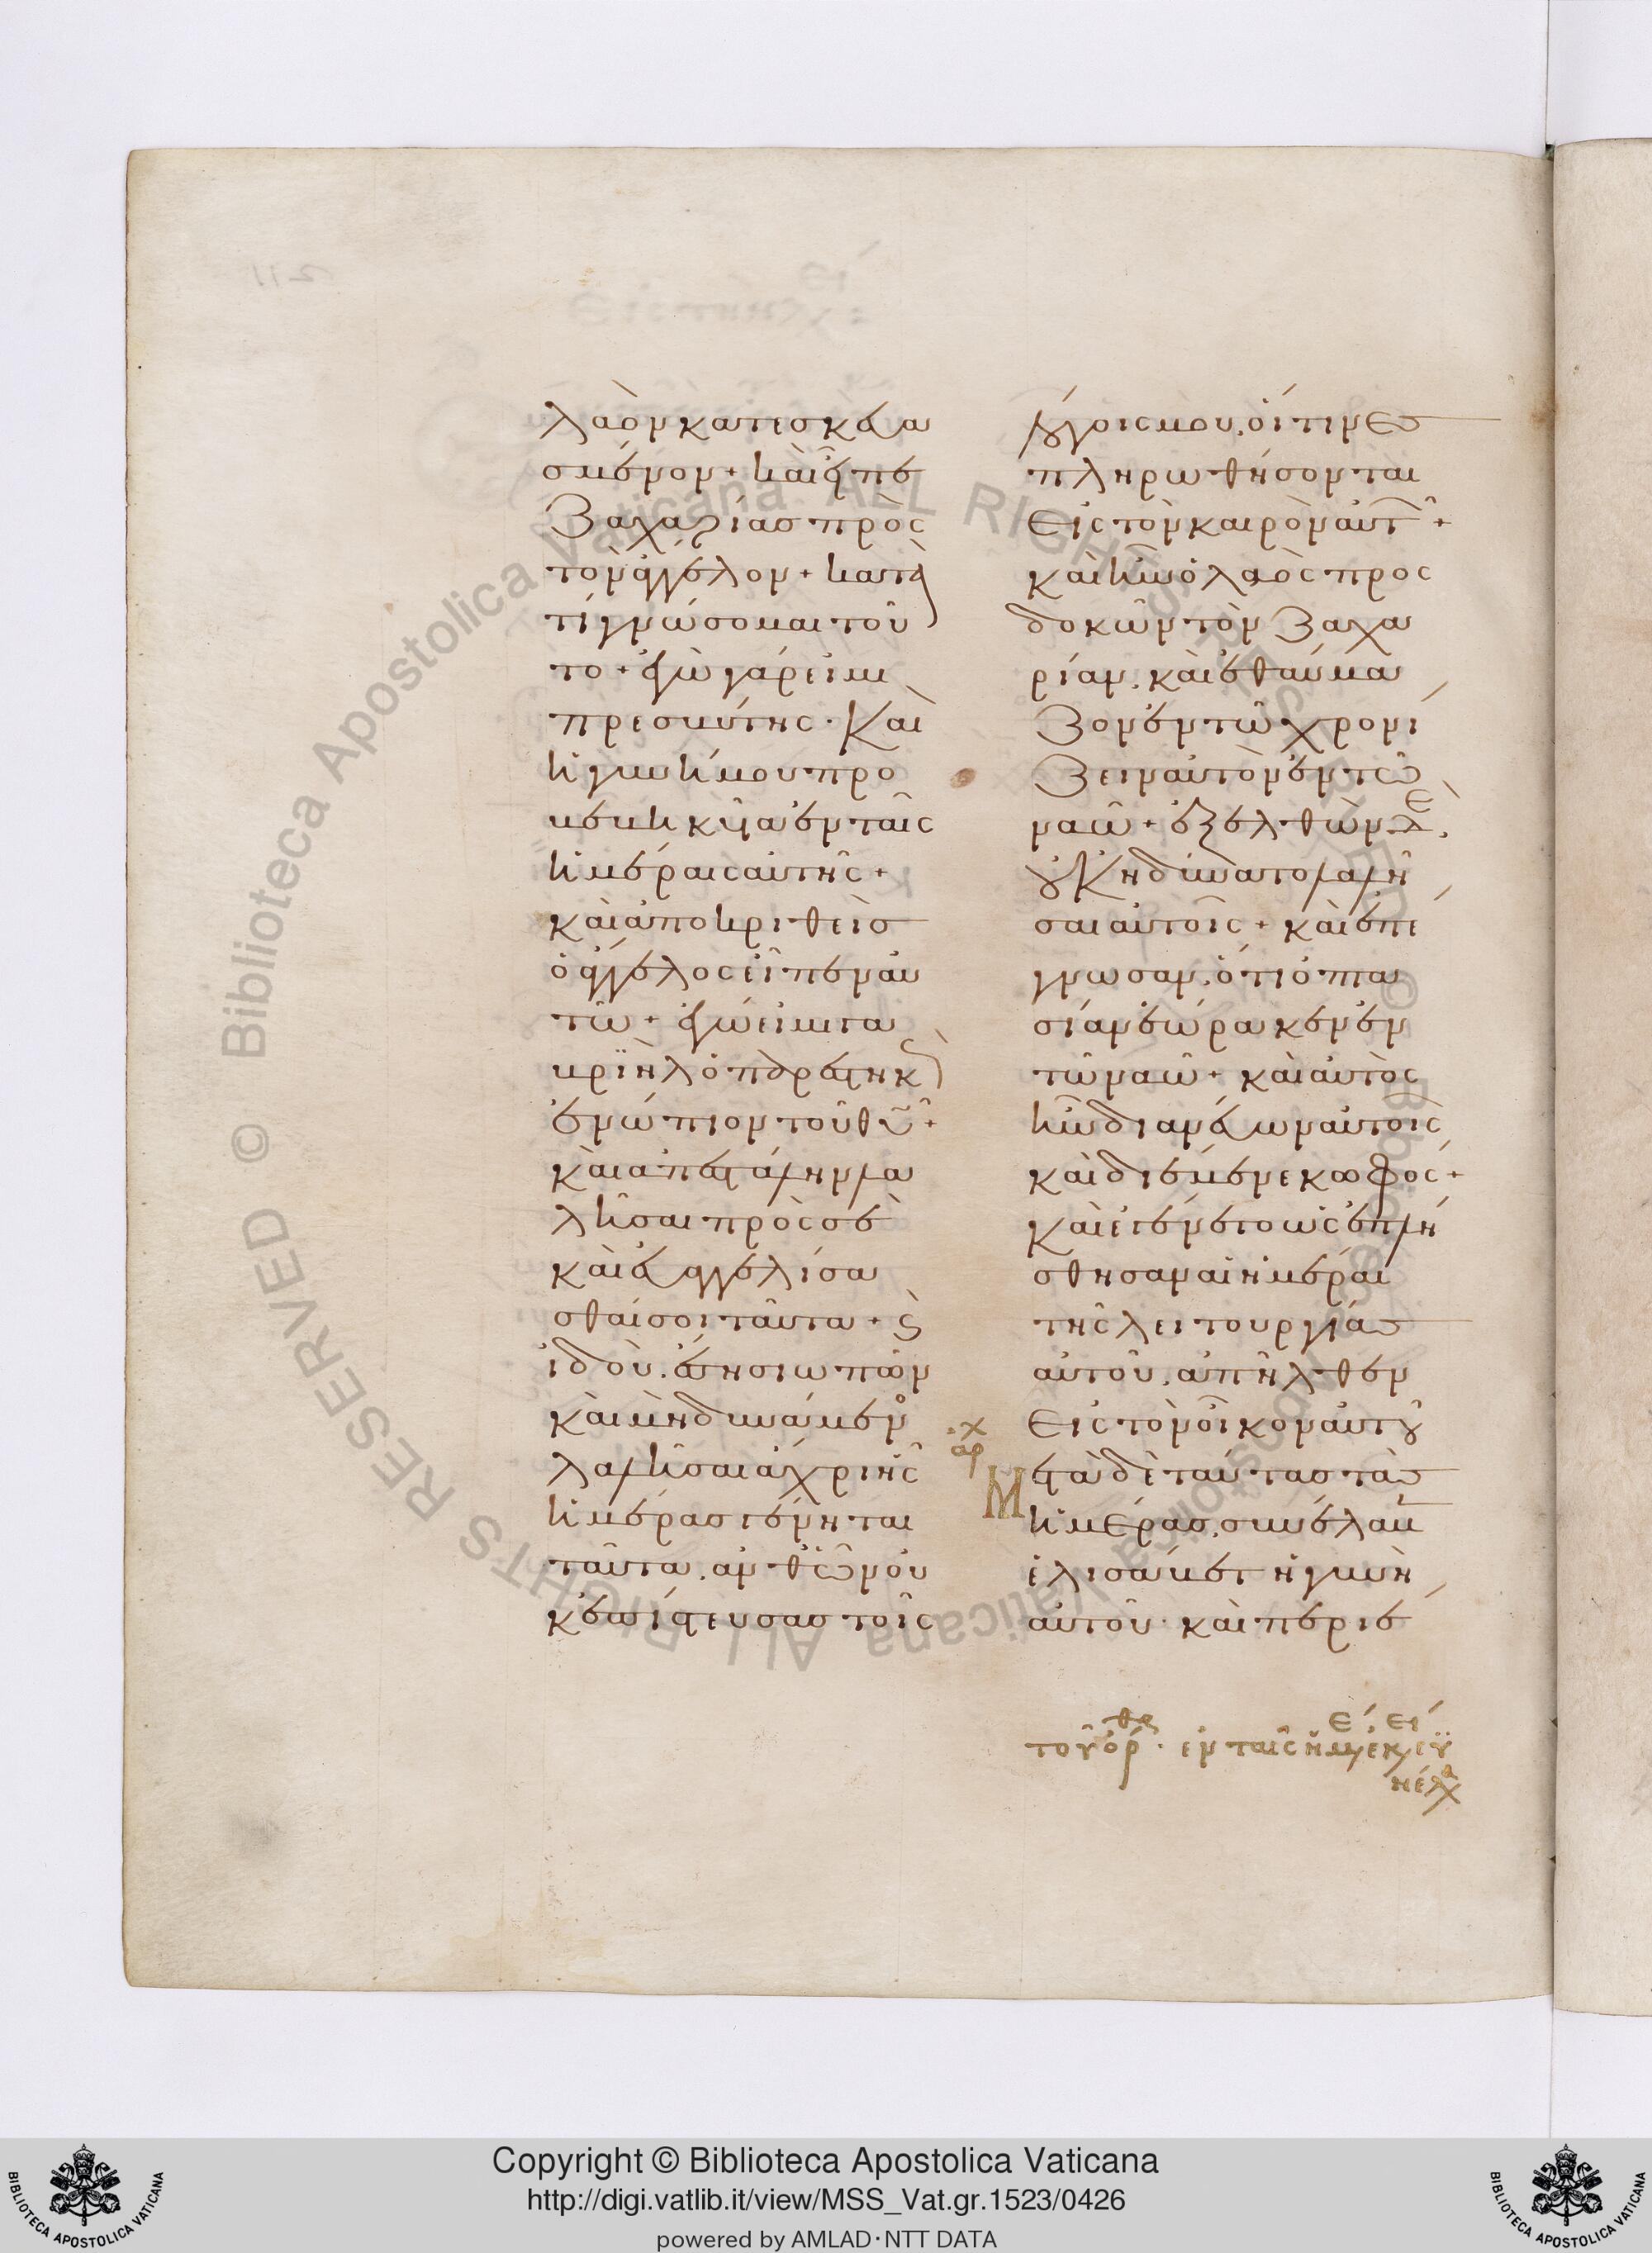 λαὸν κατεσκευα
σμένον + καὶ εἶπε
Ζαχαρίας πρὸς
τὸν ἄγγελον + κατὰ
τί γνώσομαι τοῦ
το + ἐγὼ γάρ εἰμι
πρεσβύτης · Καὶ
ἡ γυνή μου προ
βεβηκυῖα ἐν ταῖς
ἡμέραις αὐτῆς +
καὶ ἀποκριθεὶσ
ὁ ἄγγελος εἶπεν αὐ
τῶ + ἐγώ εἰμι γα
βριὴλ ὁ παρεστηκὼς
ἐνώπιον τοῦ θυ +
καὶ ἀπεστάλην λα
λῆσαι πρὸς σὲ
καὶ εὐαγγελίσα
σθαί σοι ταῦτα + ϛ
ἰδοὺ. ἔση σιωπῶν
καὶ μὴ δυνάμενο
λαλῆσαι ἄχρι ἧς
ἡμέρας γένηται
ταῦτα. ἀνθ' ὧν οὐ
κ ἐπίστευσας τοῖς
λόγοις μου, οἵτινεσ
πληρωθήσονται
Εἰς τὸν καιρὸν αὐτ +
καὶ ἦν ὁ λαὸς προς
δοκῶν τὸν Ζαχα
ρίαν, καὶ ἐθαύμα
Ζον ἐν τῶ χρονί
Ζειν αὐτὸν ἐν τῶ
ναῶ + ἐξελθὼν δε,
οὐκ ηδύνατο λαλῆ
σαι αὐτοῖς + καὶ ἐπέ
γνωσαν, ὅτι ὀπτα
σίαν ἑώρακεν ἐν
τῶ ναῶ + καὶ αὐτὸς
ἦν διανεύων αὐτοῖς
καὶ διέμενε κωφος +
Καὶ ἐγένετο ὡς ἐπλή
σθησαν αἱ ἡμέραι
τῆς λειτουργίασ
αὐτοῦ, ἀπῆλθεν
Εἰς τὸν οἶκον αὐτοῦ
Μετὰ δὲ ταύτας τὰσ
ἡμέρας, συνέλαβ
ἐλισάβετ ἡ γυνὴ
αὐτοῦ · καὶ περιε